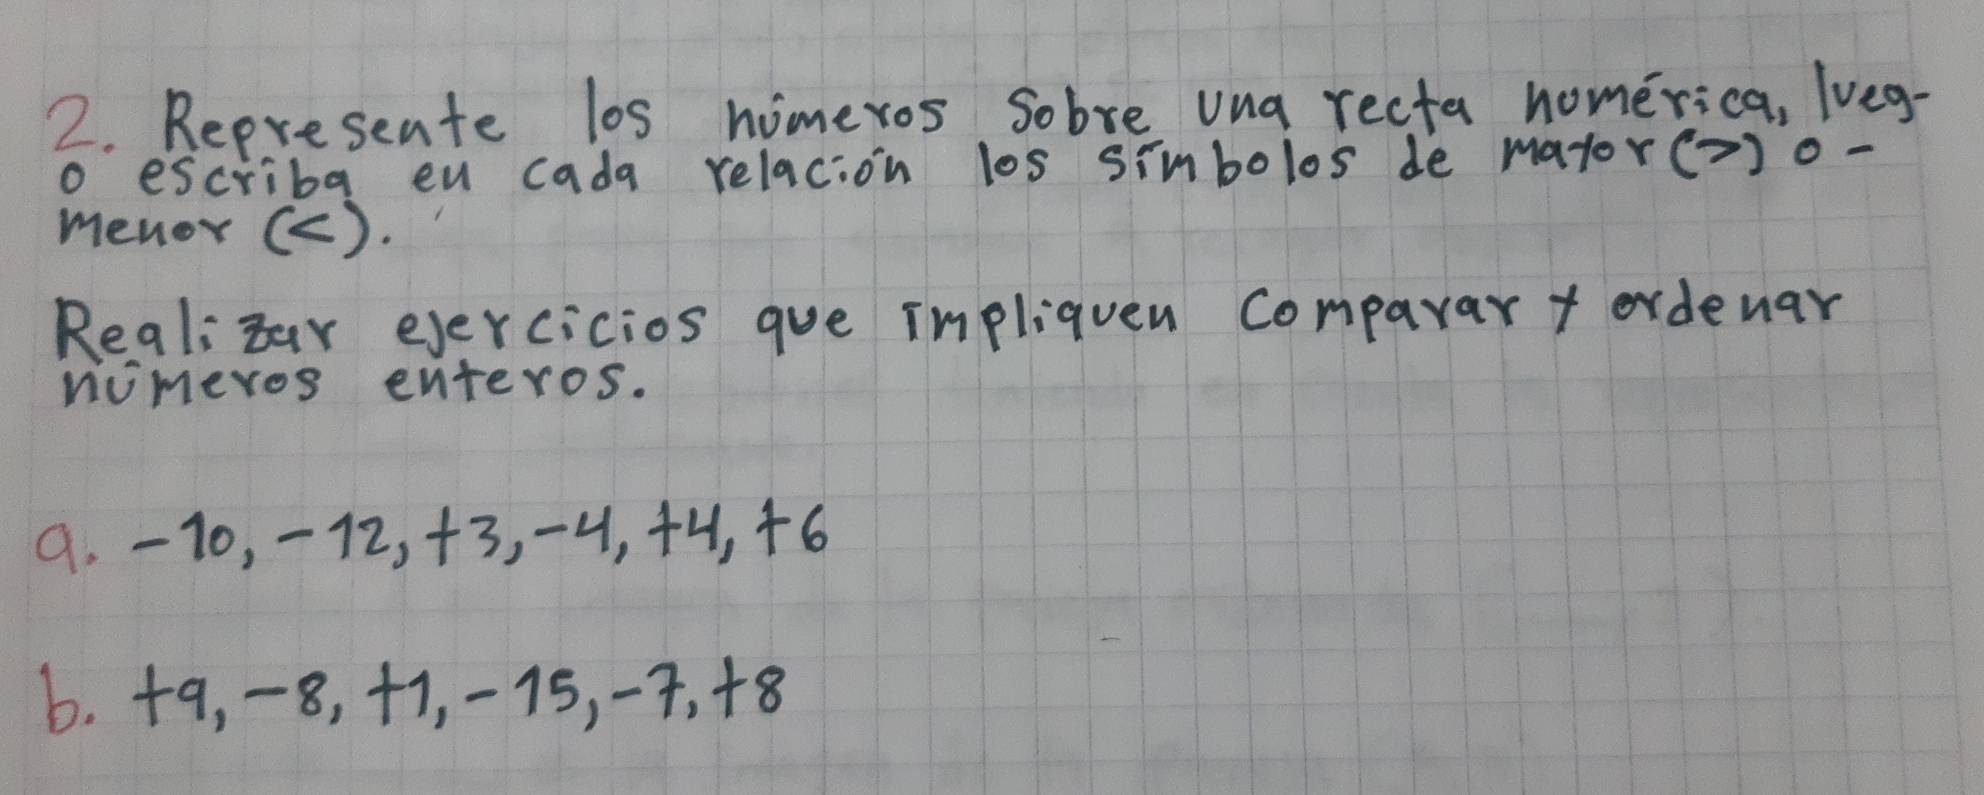 2. Represente los números sobre una recta numérica, lueg-
o escriba en cada relación los símbolos de mayor (>) o -
menor (<).
Realizar ejercicios que impliquen comparar y ordenar
números enteros.
a. -10, -12, +3, -4, +4, +6
b. +9, -8, +1, -15, -7, +8